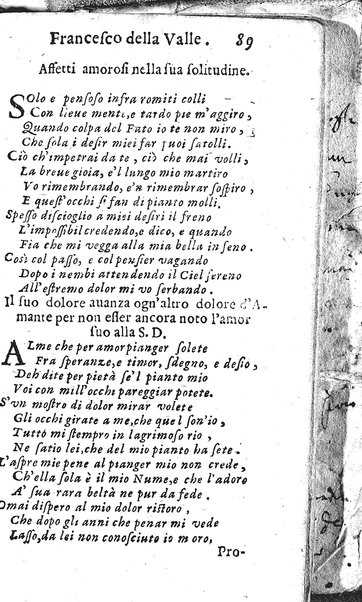 Francesco della Valle. 89
Affetti amorosi nella sua solitudine.
SOlo e pensoso infra romiti colli
Con lieue mente, e tardo pie m'aggiro,
Quando colpa del Fato io te non miro,
Che sola i desir miei far puoi satolli.
Ciò ch'impetrai da te, ciò che mai volli,
La breue gioia, e'l lungo mio martiro
Vo rimembrando, e'n rimembrar sospiro,
E quest'occhi si fan di pianto molli.
Spesso discioglio a miei desiri il freno
L'impossibil credendo, e dico, e quando
Fia che mi vegga alla mia bella in seno.
Così col passo, e col pensier vagando
Dopo i nembi attendendo il Ciel sereno
All'estremo dolor mi vo serbando.
Il suo dolore auanza ogn'altro dolore d'A-
mante per non esser ancora noto l'amor
suo alla S. D.
ALme che per amor pianger solete
Fra speranze, e timor, sdegno, e desio,
Deh dite per pietà se'l pianto mio
Voi con mill'occhi pareggiar potete.
S'vn mostro di dolor mirar volete
Gli occhi girate a me, che quel son'io,
Tutto mi stempro in lagrimoso rio,
Ne satio lei, che del mio pianto ha sete.
L'aspre mie pene al pianger mio non crede,
Ch'ella sola è il mio Nume, e che l'adoro
A' sua rara beltà ne pur da fede.
Omai dispero al mio dolor ristoro,
Che dopo gli anni che penar mi vede
Lasso, da lei non conosciuto io moro,
Pro-